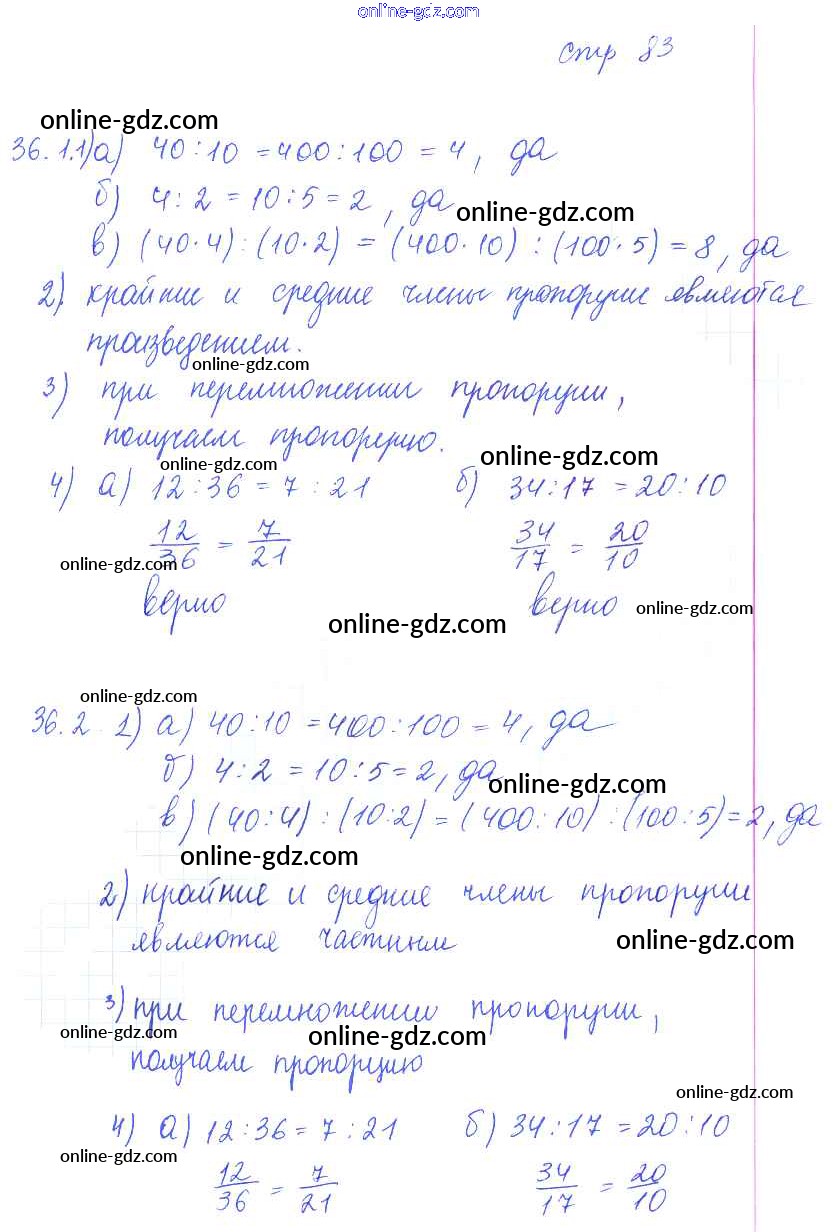 online-gdz.com
стр 83
online-gdz.com
36. 1.1) а) 40 : 10 = 400 : 100 = 4, да
б) 4 : 2 = 10 : 5 = 2, да
online-gdz.com
в) (40·4) : (10·2) = (400·10) : (100·5) = 8, да
2) крайние и средние члены пропорции являются
произведением.
online-gdz.com
3) при перемножении пропорции,
получаем пропорцию.
online-gdz.com online-gdz.com
4) а) 12 : 36 = 7 : 21 б) 34 : 17 = 20 : 10
12/36 = 7/21 34/17 = 20/10
online-gdz.com
верно верно online-gdz.com
online-gdz.com
online-gdz.com
36. 2 1) а) 40 : 10 = 400 : 100 = 4, да
б) 4 : 2 = 10 : 5 = 2, да
online-gdz.com
в) (40 : 4) : (10 : 2) = (400 : 10) : (100 : 5) = 2, да
online-gdz.com
2) крайние и средние члены пропорции
являются частным
online-gdz.com
3) при перемножении пропорции,
online-gdz.com online-gdz.com
получаем пропорцию
online-gdz.com
4) а) 12 : 36 = 7 : 21 б) 34 : 17 = 20 : 10
online-gdz.com
12/36 = 7/21 34/17 = 20/10